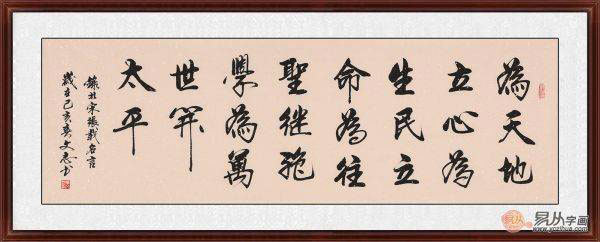 為天地
立心為
生民立
命為往
聖繼絕
學為萬
世開
太平
錄北宋張載名言
歲在己亥
易从字画
www.yczihua.com